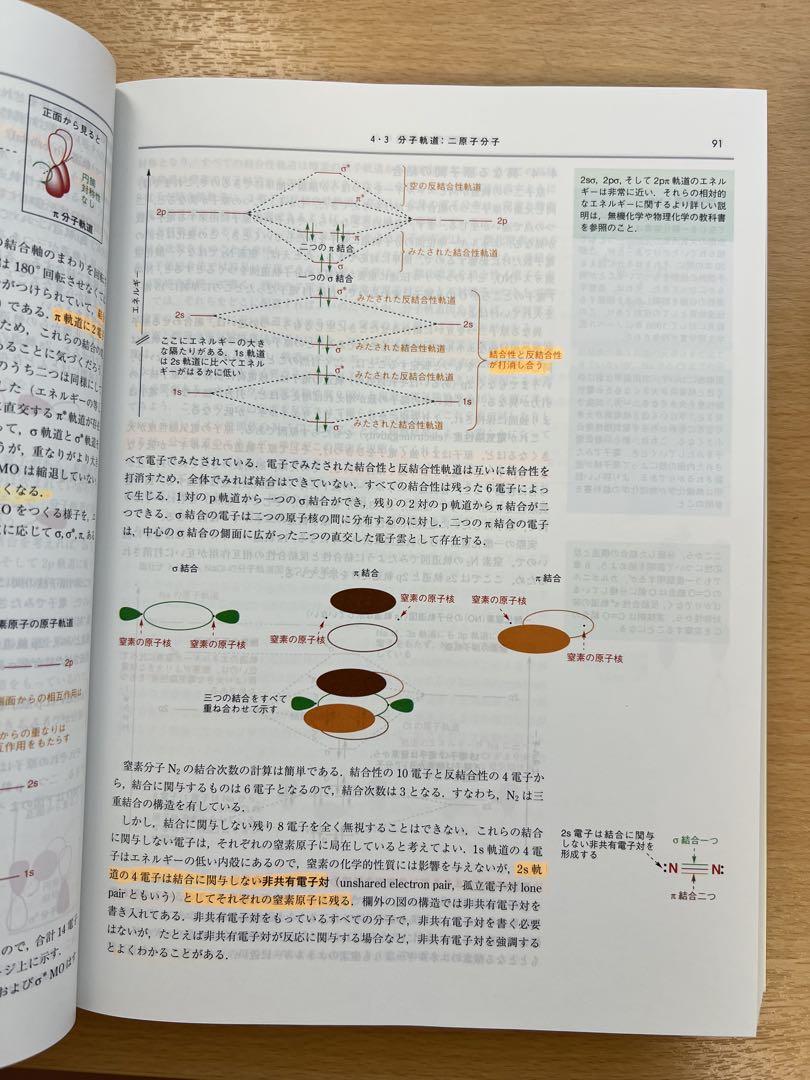 4・3 分子軌道：二原子分子
91
正面から見ると
円筒
対称性
なし
π分子軌道
の結合軸のまわりを回転
は 180°回転させなくて
がつけられていて，結
である
π軌道に2電
ため，これらの結合の
ることに気づくだろう
のうち二つは同様にし
した（エネルギーの等し
直交するπ*軌道が存
って，σ軌道とσ*軌道
うが，重なりがより大き
MOは縮退していない
くなる．
MOをつくる様子を，
に応じてσ，σ*，π，ある
素原子の原子軌道
2p
側面からの相互作用は
からの重なりは
互作用をもたらす
2s
1s
ので，合計14電子
ージ上に示す．
およびσ*MOはす
エネルギー
σ*
空の反結合性軌道
π*
2p
2p
二つのπ結合
みたされた結合性軌道
σ
一つのσ結合
σ*
みたされた反結合性軌道
2s
2s
ここにエネルギーの大き
な隔たりがある．1s 軌道
は 2s 軌道に比べてエネル
ギーがはるかに低い
σ
みたされた結合性軌道
結合性と反結合性
が打消し合う
σ*
みたされた反結合性軌道
1s
1s
σ
みたされた結合性軌道
2sσ, 2pσ, そして 2pπ 軌道のエネル
ギーは非常に近い．それらの相対的
なエネルギーに関するより詳しい説
明は，無機化学や物理化学の教科書
を参照のこと．
べて電子でみたされている．電子でみたされた結合性と反結合性軌道は互いに結合性を
打消すため，全体でみれば結合はできていない．すべての結合性は残った 6 電子によっ
て生じる．1 対の p 軌道から一つのσ結合ができ，残りの 2 対の p 軌道からπ結合が二
つできる．σ結合の電子は二つの原子核の間に分布するのに対し，二つのπ結合の電子
は，中心のσ結合の側面に広がった二つの直交した電子雲として存在する．
σ結合
π結合
π結合
窒素の原子核
窒素の原子核
窒素の原子核
窒素の原子核
窒素の原子核
三つの結合をすべて
重ね合わせて示す
窒素分子 N₂ の結合次数の計算は簡単である．結合性の 10 電子と反結合性の 4 電子か
ら，結合に関与するものは 6 電子となるので，結合次数は 3 となる．すなわち，N₂ は三
重結合の構造を有している．
しかし，結合に関与しない残り 8 電子を全く無視することはできない．これらの結合
に関与しない電子は，それぞれの窒素原子に局在していると考えてよい．1s 軌道の 4 電
子はエネルギーの低い内殻にあるので，窒素の化学的性質には影響を与えないが，2s 軌
道の 4 電子は結合に関与しない非共有電子対（unshared electron pair，孤立電子対 lone
pair ともいう）としてそれぞれの窒素原子に残る．欄外の図の構造では非共有電子対を
書き入れてある．非共有電子対をもっているすべての分子で，非共有電子対を書く必要
はないが，たとえば非共有電子対が反応に関与する場合など，非共有電子対を強調する
とよくわかることがある．
2s 電子は結合に関与
しない非共有電子対を
形成する
σ結合一つ
:N≡N:
π結合二つ